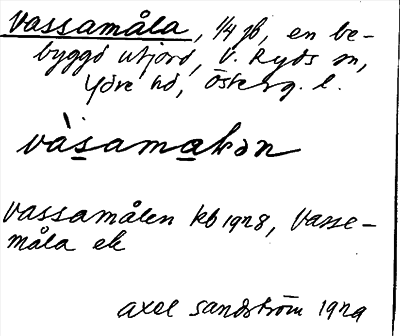 Vassamåla, 1/4 gb, en be-
byggd utjord, V. Ryds sn,
Ydre hd, Österg. l.
vàsamakən
Vassamålen kb 1928, Vasse-
måla ek
Axel Sandström 1929